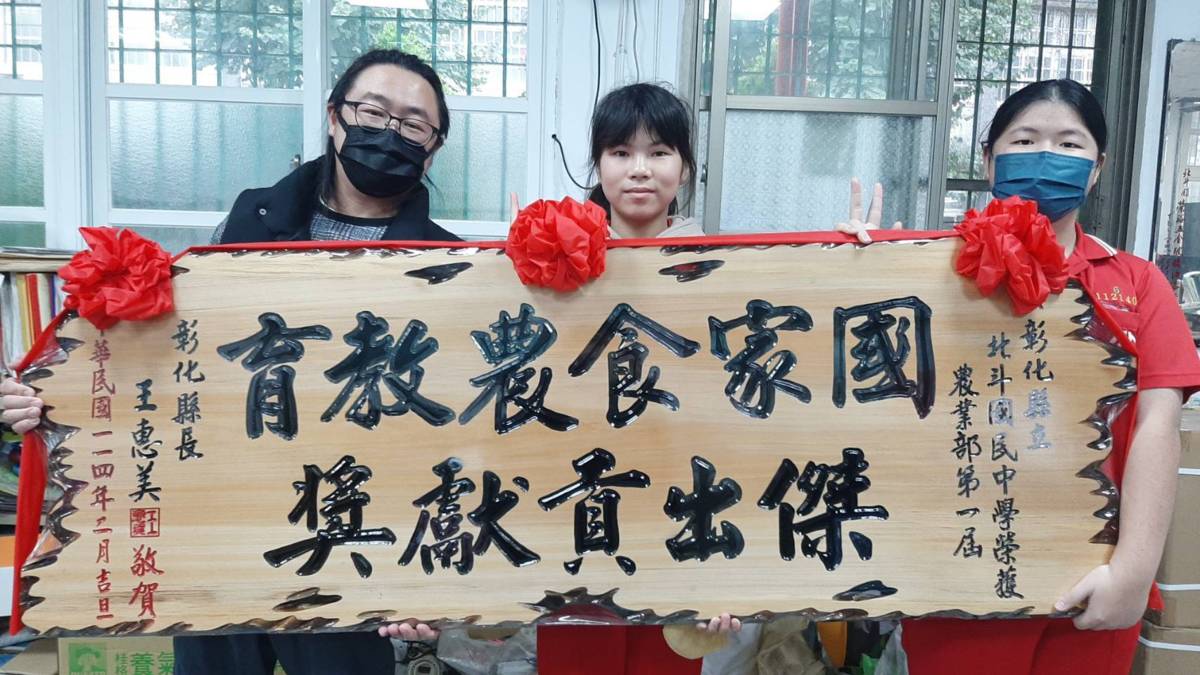 彰化縣立
北斗國民中學榮獲
農業部第一屆
國家食農教育
傑出貢獻獎
彰化縣長
王惠美
敬賀
華民國一一四年二月吉旦
6
112140
桂格
養氣